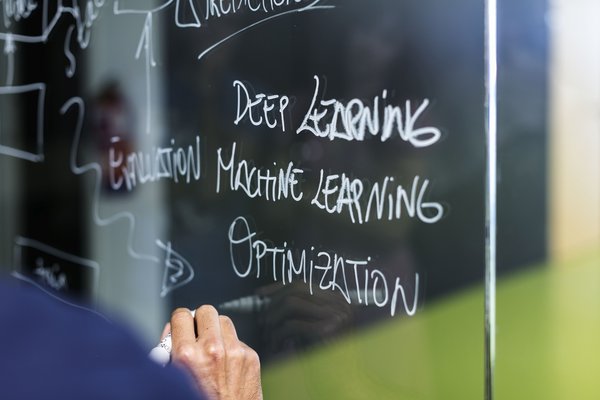 PREDICTION
DEEP LEARNING
EVALUATION
MACHINE LEARNING
OPTIMIZATION